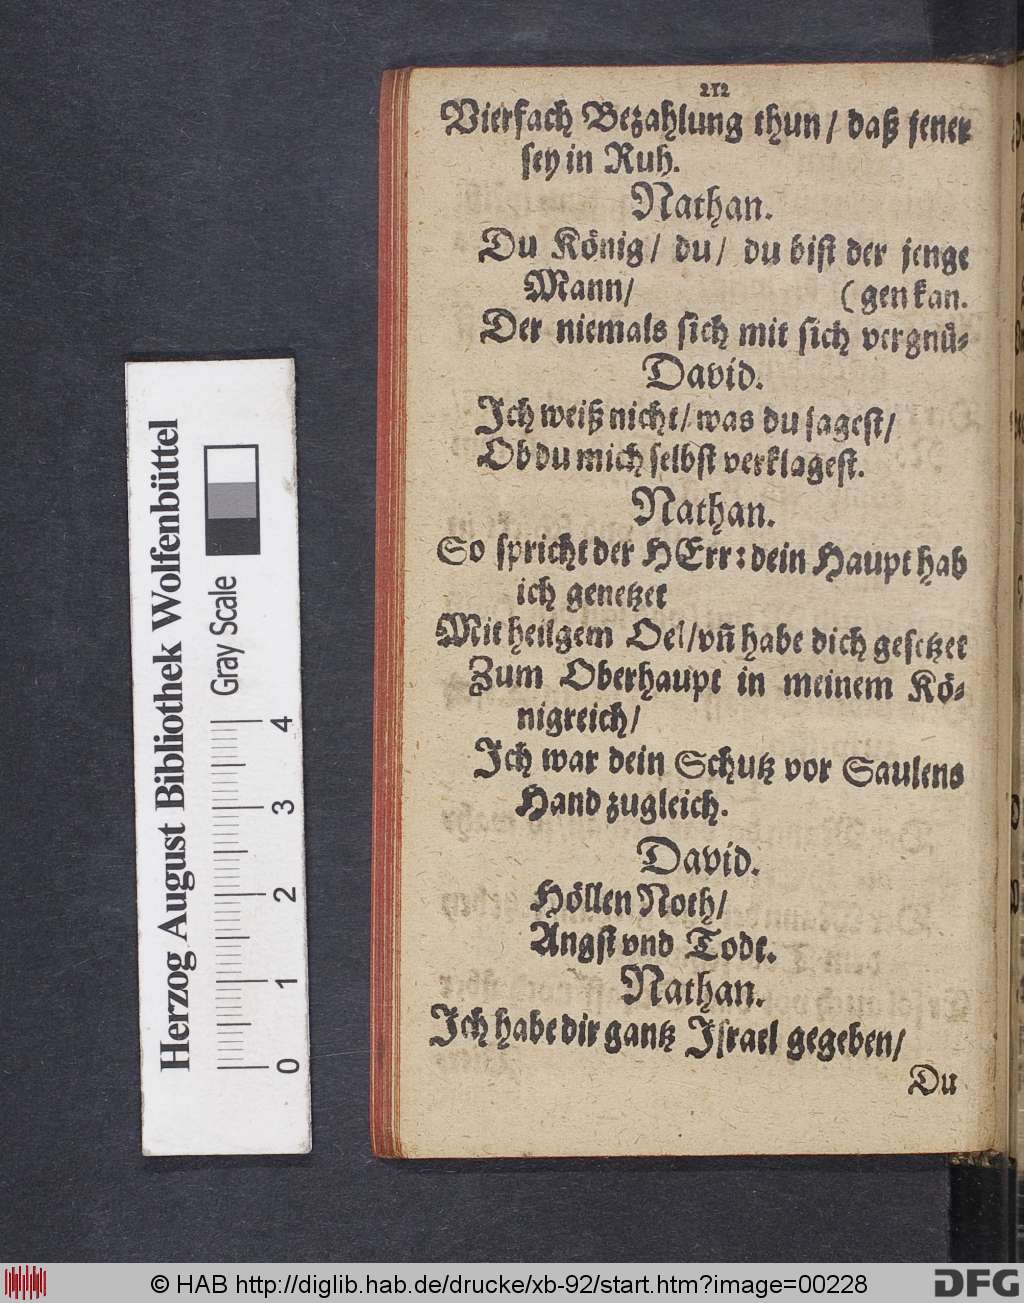 212
Vierfach Bezahlung thun / daß jener
sey in Ruh.
Nathan.
Du König / du / du bist der jenge
Mann / (gen kan.
Der niemals sich mit sich vergnü-
David.
Ich weiß nicht / was du sagest /
Ob du mich selbst verklagest.
Nathan.
So spricht der HErr: dein Haupt hab
ich genetzet
Mit heilgem Oel / vñ habe dich gesetzet
Zum Oberhaupt in meinem Kö-
nigreich /
Ich war dein Schutz vor Saulens
Hand zugleich.
David.
Höllen Noth /
Angst vnd Todt.
Nathan.
Ich habe dir gantz Israel gegeben /
Du
Herzog August Bibliothek Wolfenbüttel
Gray Scale
0 1 2 3 4
© HAB http://diglib.hab.de/drucke/xb-92/start.htm?image=00228
DFG